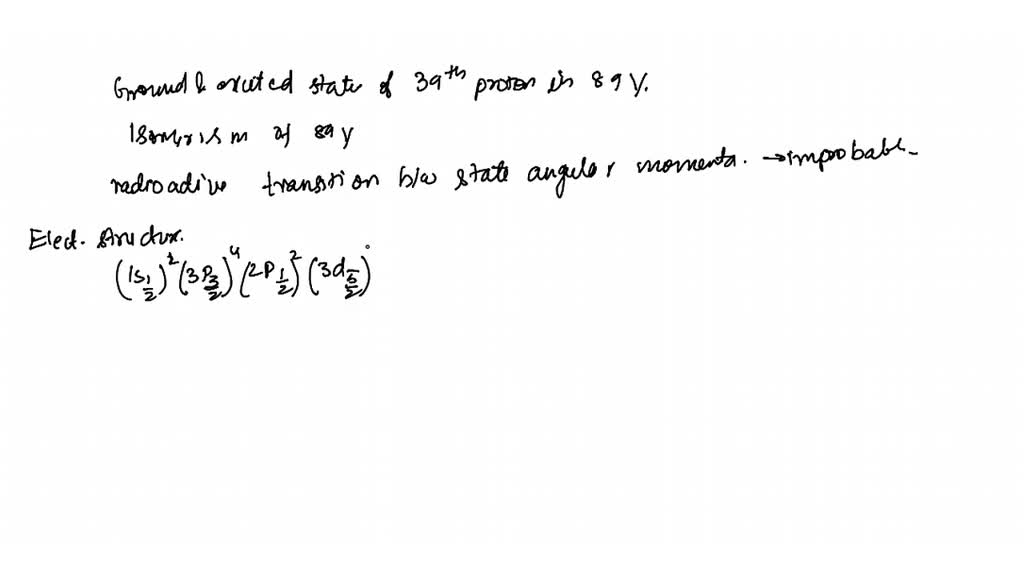 Ground & excited state of 39th proton in 89 Y.
Isomerism of 89 Y
radioactive transition b/w state angular momenta. → improbable
Elect. structure.
(1s 1/2)² (3P 3/2)⁴ (2P 1/2)² (3d 5/2)